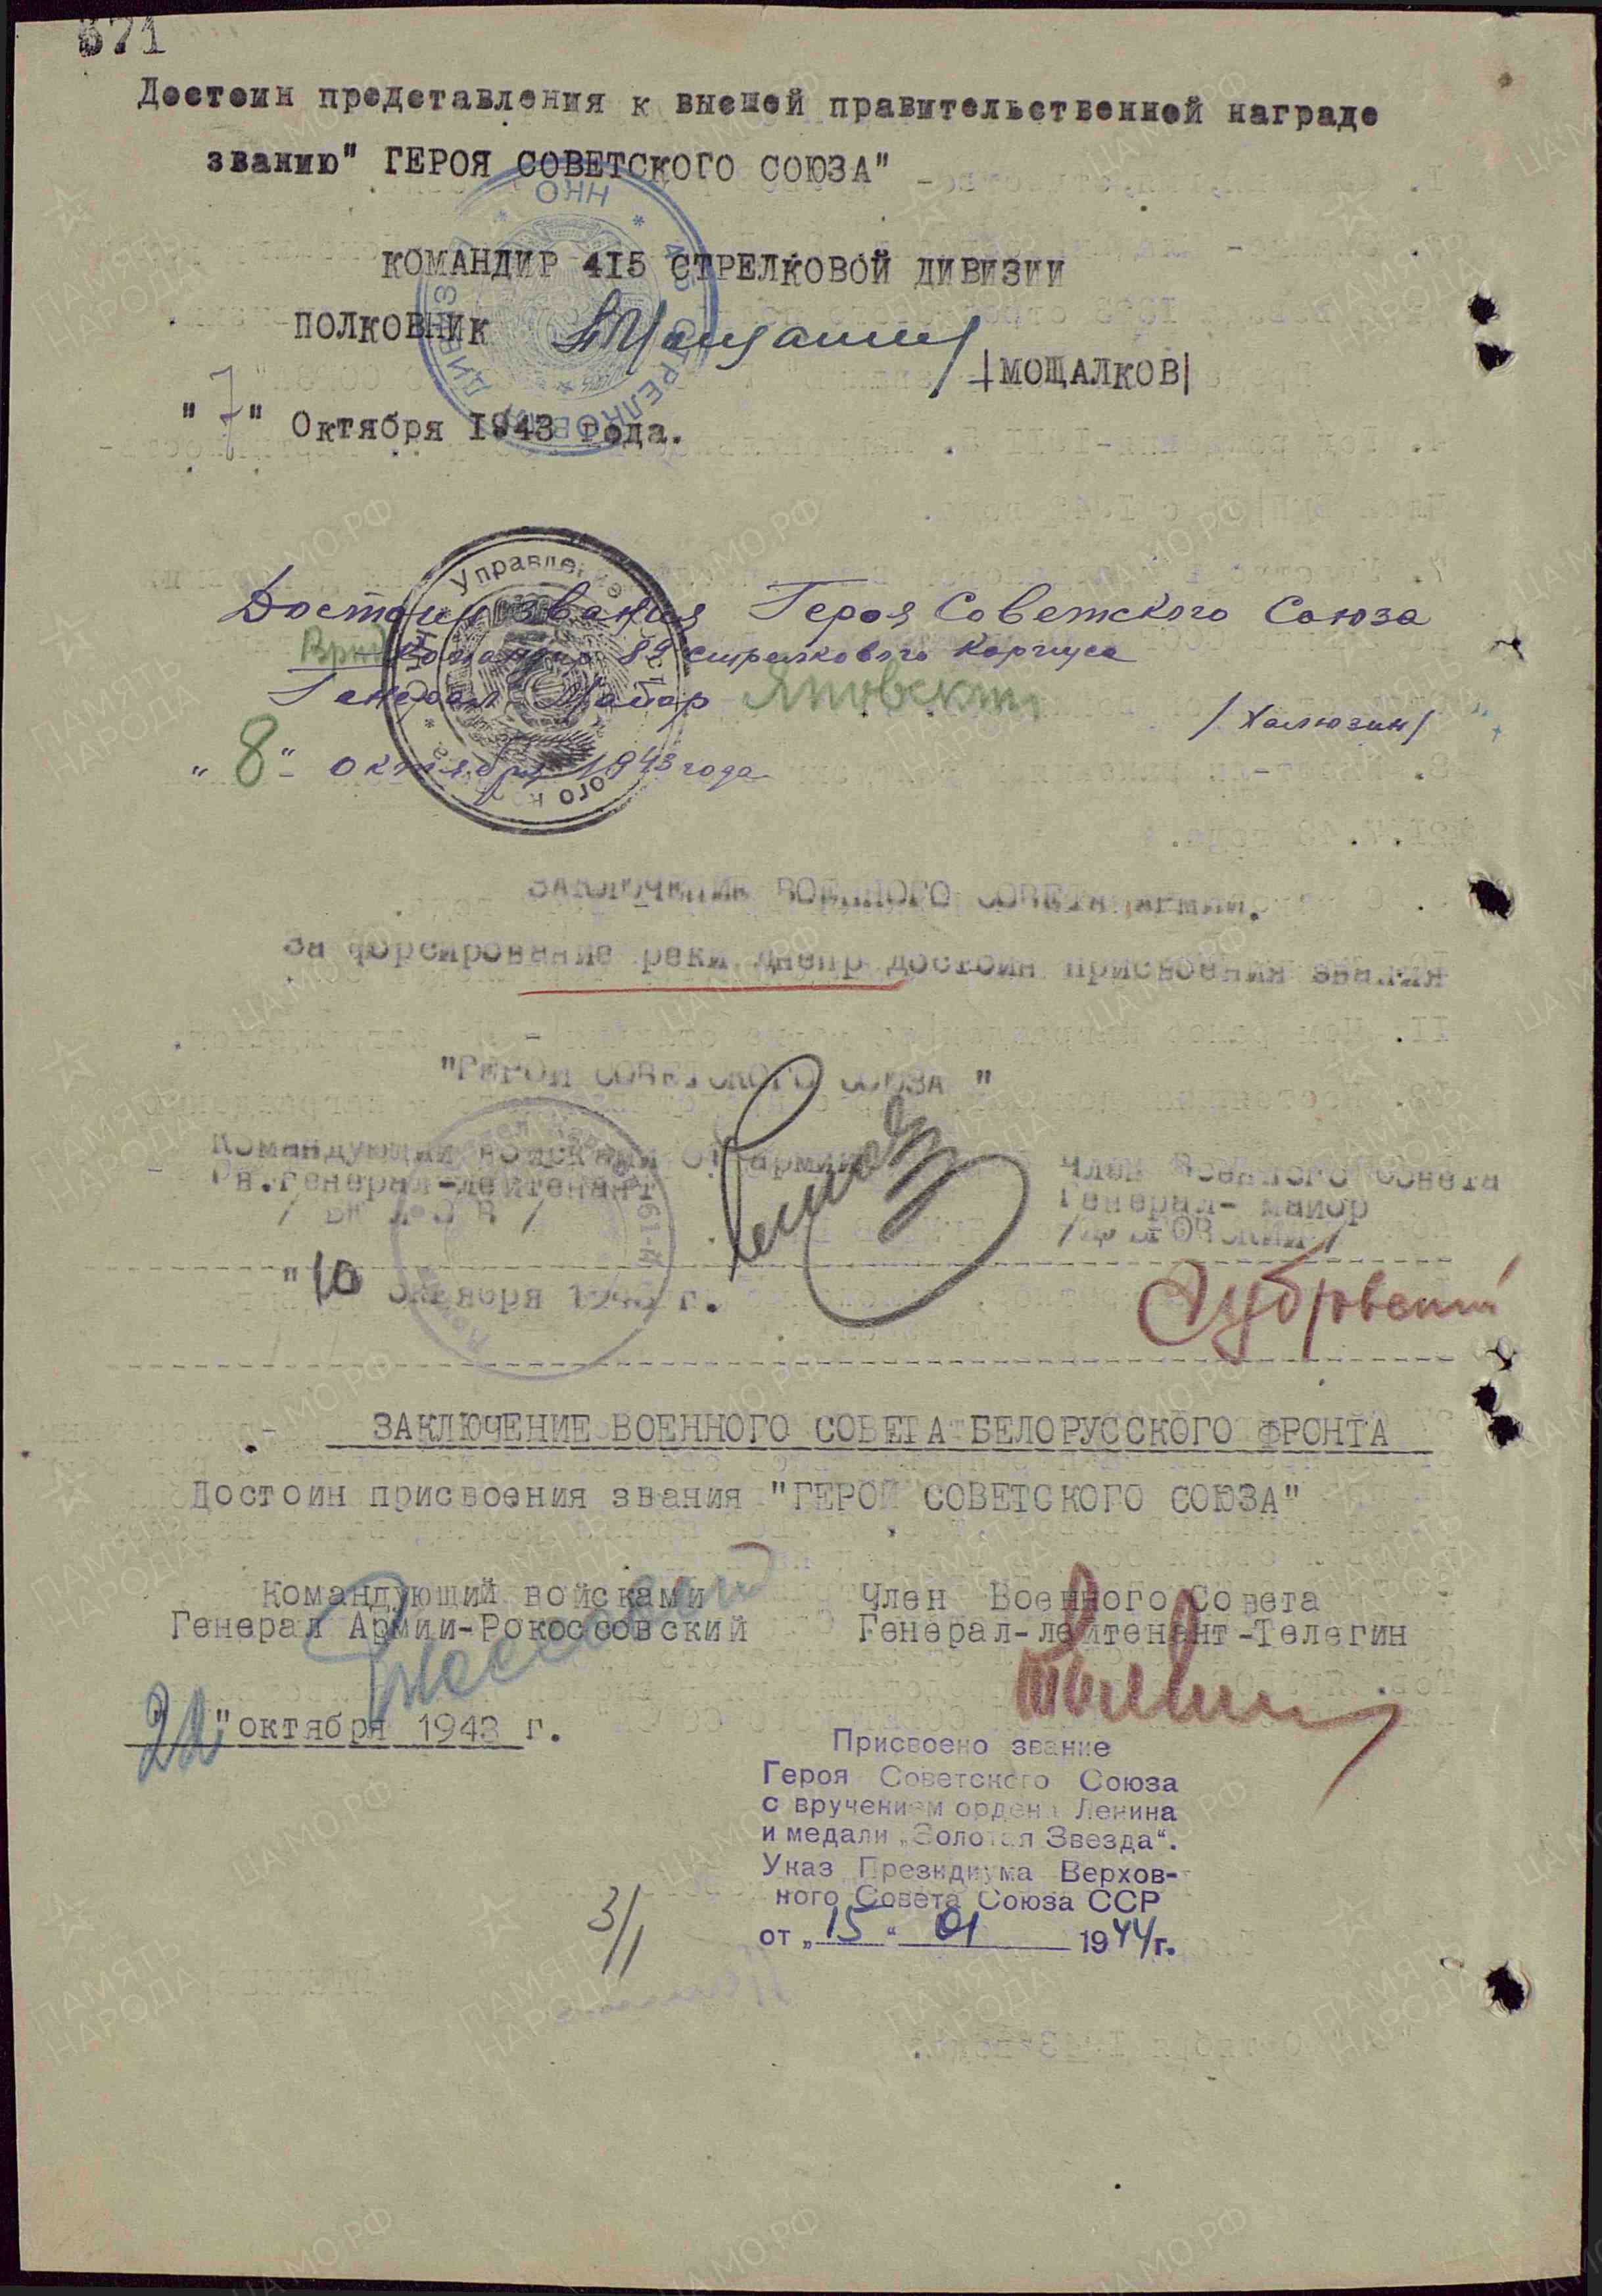 671
Достоин представления к высшей правительственной награде
званию" ГЕРОЯ СОВЕТСКОГО СОЮЗА"
КОМАНДИР 4I5 СТРЕЛКОВОЙ ДИВИЗИИ
ПОЛКОВНИК
|МОЩАЛКОВ|
"7" Октября I943 года.
Достоин звания Героя Советского Союза
Врид Командир 89 стрелкового корпуса
Генерал Майор Яновский
/Халюзин/
"8" октября 1943 года
ЗАКЛЮЧЕНИЕ ВОЕННОГО СОВЕТА АРМИИ.
За форсирование реки Днепр достоин присвоения звания
"ГЕРОЙ СОВЕТСКОГО СОЮЗА "
Командующий войсками 61 армии
Гв.генерал-лейтенант
/ БЕЛОВ /
Член Военного Совета
Генерал- майор
/ДУБРОВСКИЙ/
"10 октября 1943 г.
Дубровский
ЗАКЛЮЧЕНИЕ ВОЕННОГО СОВЕТА БЕЛОРУССКОГО ФРОНТА
Достоин присвоения звания "ГЕРОЙ СОВЕТСКОГО СОЮЗА"
Командующий войсками
Генерал Армии-Рокоссовский
Член Военного Совета
Генерал-лейтенант-Телегин
"22"октября 1943 г.
Присвоено звание
Героя Советского Союза
с вручением ордена Ленина
и медали „Золотая Звезда“.
Указ Президиума Верхов-
ного Совета Союза ССР
от „15“ 01 1944г.
3/1
ПАМЯТЬ НАРОДА
ЦАМО.РФ